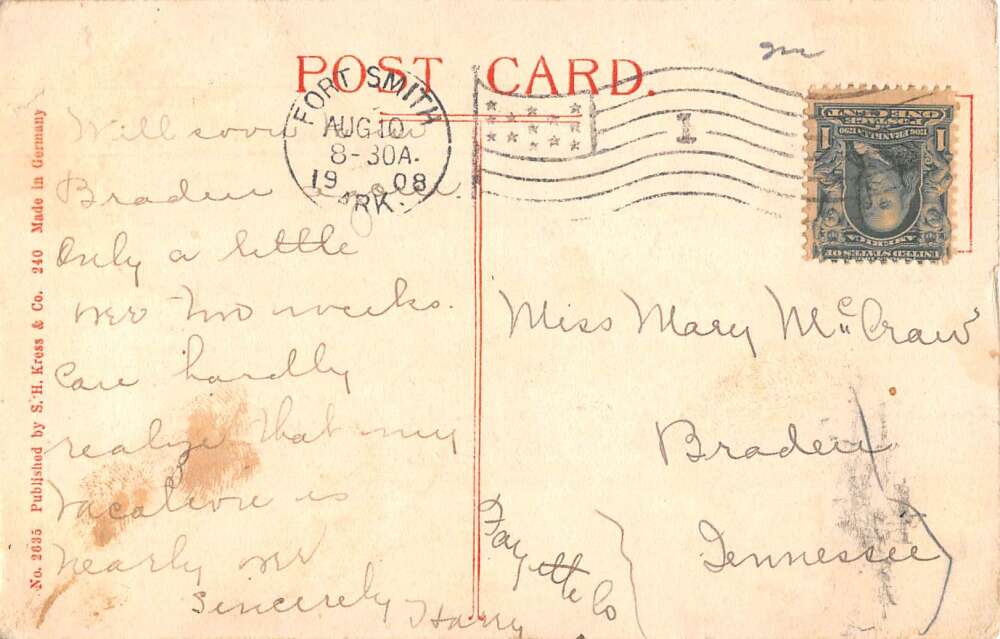 POST CARD.
FORT SMITH
AUG 10
8-30A.
19 08
ARK.
1
ONE CENT
POSTAGE
1 1
AMERICA
UNITED STATES OF
No. 2635 Published by S. H. Kress & Co. 240 Made in Germany
Will soon
Braden again.
Only a little
over two weeks.
Can hardly
realize that my
vacation is
nearly over
Sincerely Harry
Miss Mary McCraw
Braden
Tennessee
Fayette Co